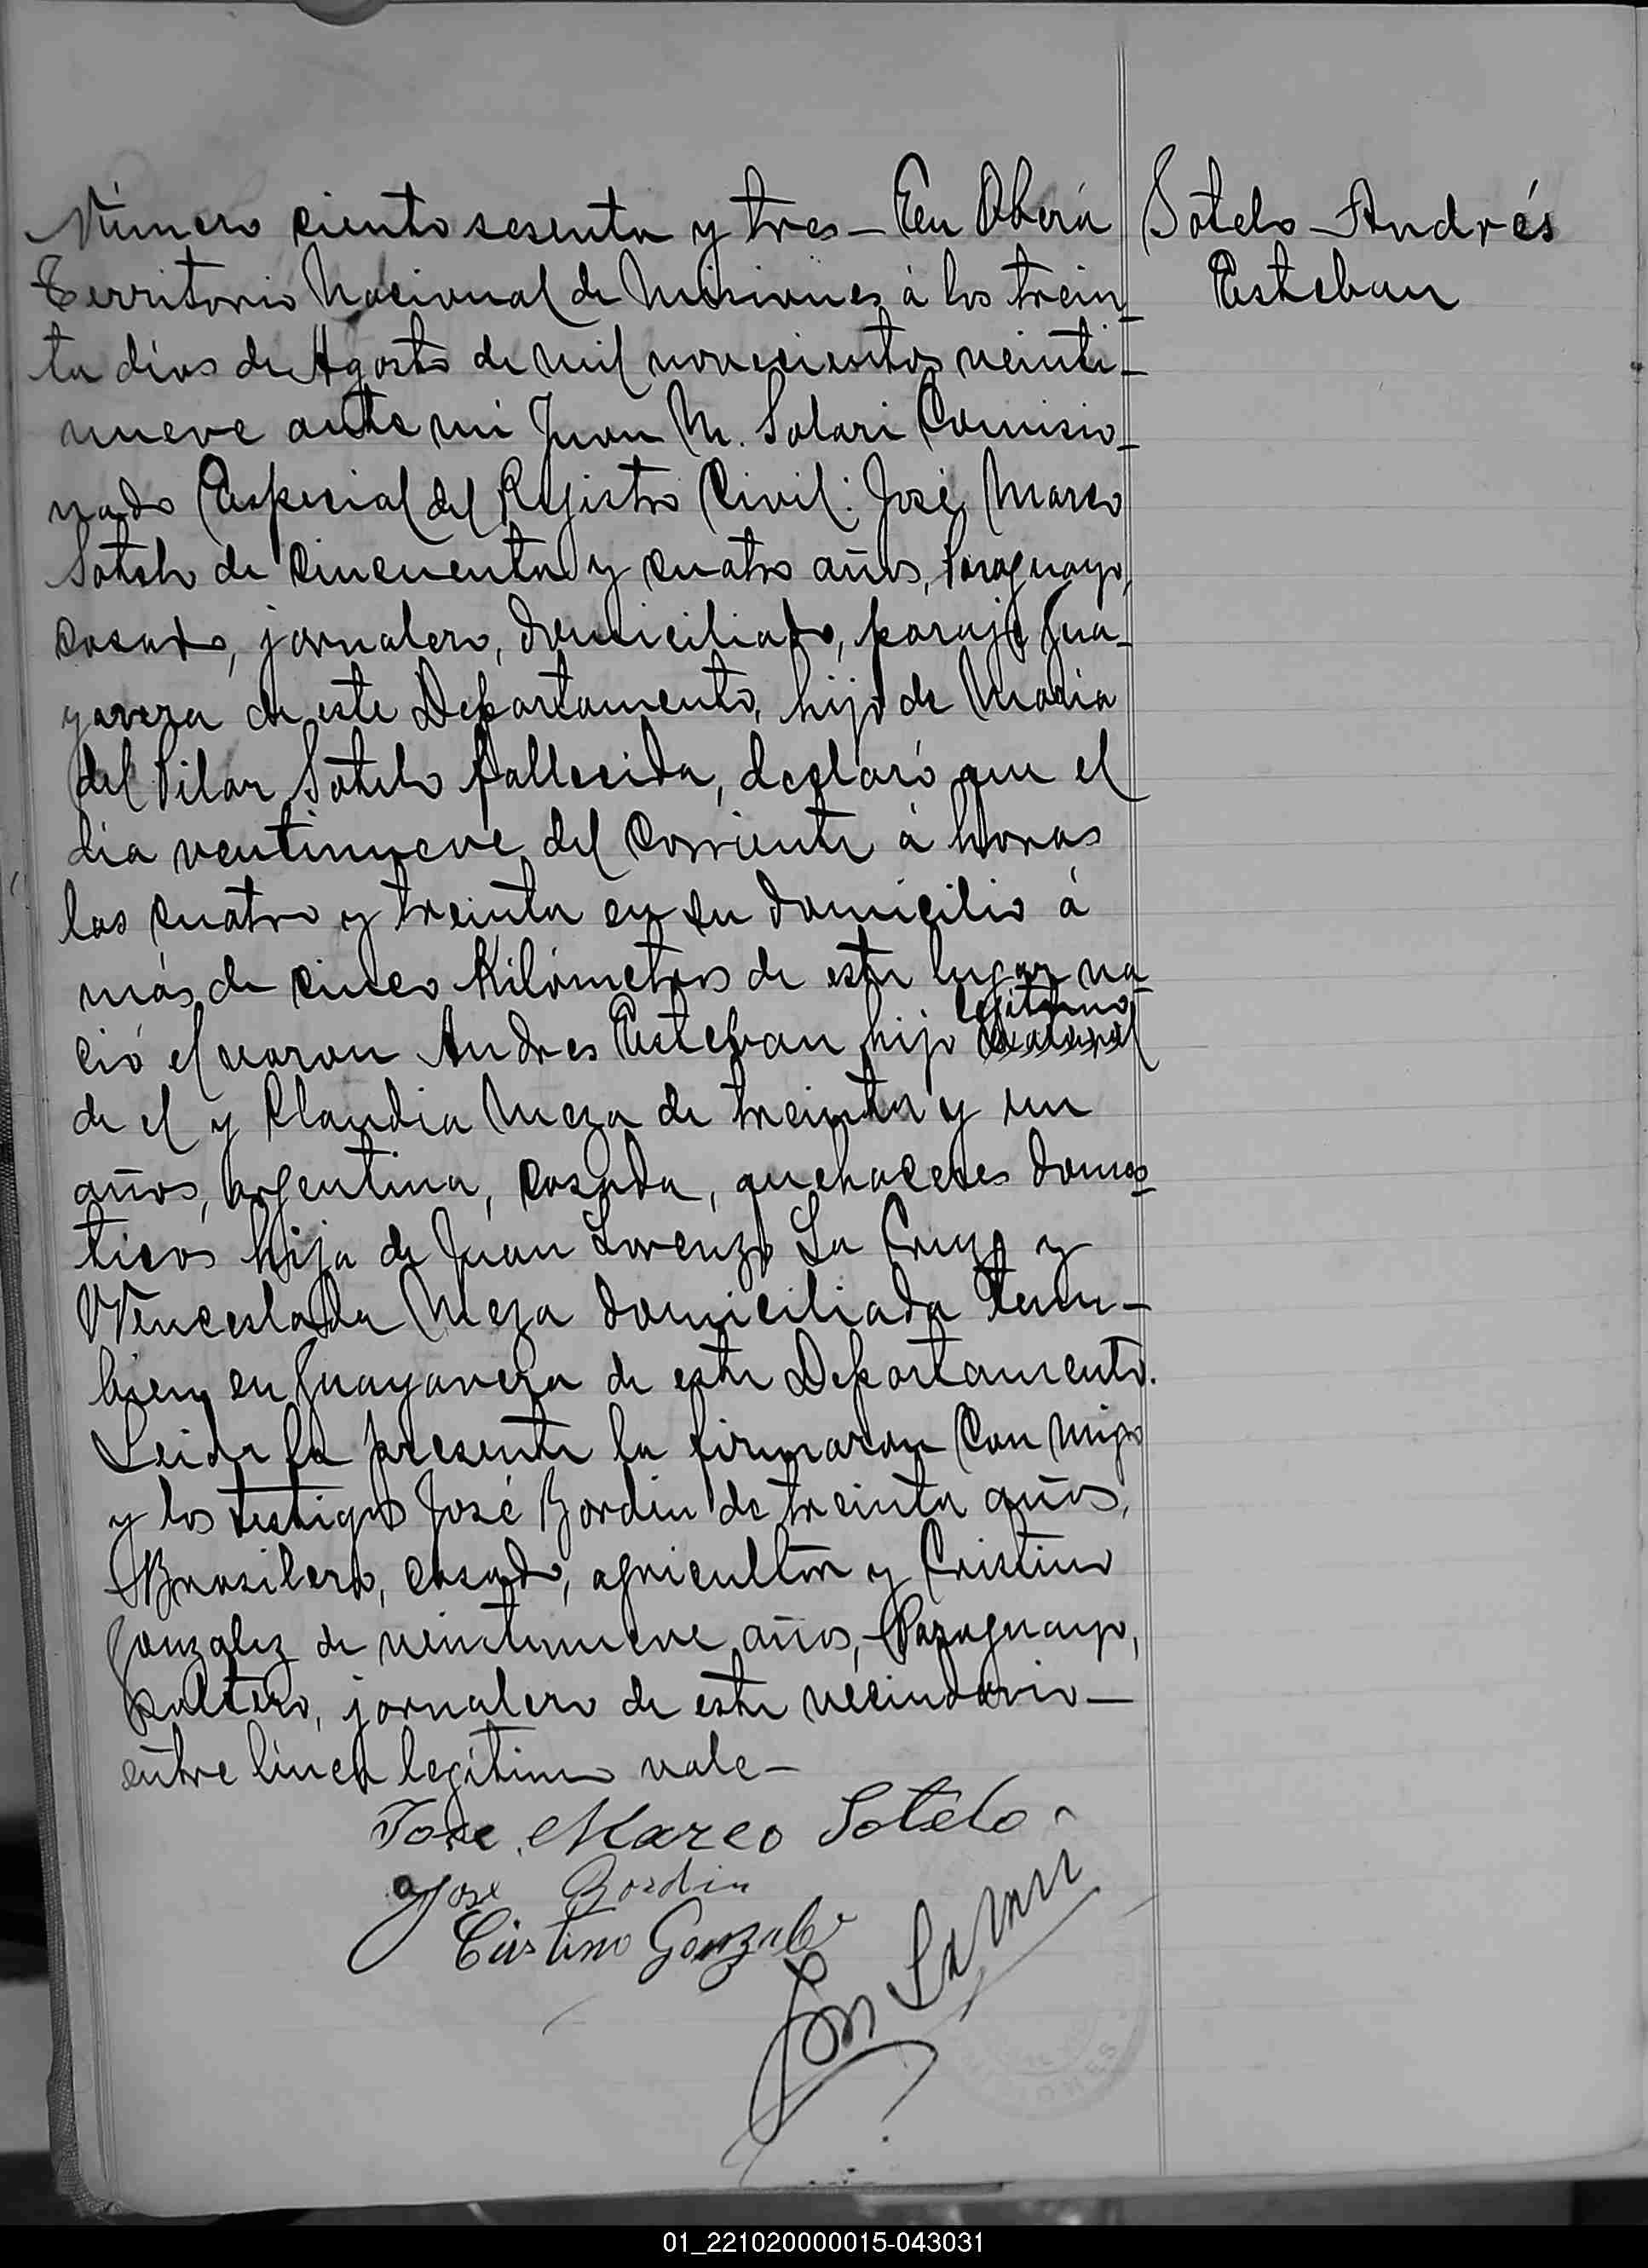 Número ciento sesenta y tres - En Oberá
Territorio Nacional de Misiones á los trein
ta dias de Agosto de mil novecientos veinti-
nueve ante mi Juan M. Solari Comisio-
nado Especial del Registro Civil: José Marco
Sotelo de cincuenta y cuatro años, Paraguayo,
casado, jornalero, domiciliado, paraje Gua-
yavera de este Departamento, hijo de Maria
del Pilar Sotelo fallecida, declaró que el
dia ventinueve del corriente á horas
las cuatro y treinta en su domicilio á
más de cinco Kilómetros de este lugar na
legitimo
ció el varon Andres Esteban hijo natural
de el y Claudia Meza de treinta y un
años, argentina, casada, quehaceres domes
ticos hija de Juan Lorenzo La Cruz y
Wenceslada Meza domiciliada tam-
bien en Guayavera de este Departamento.
Leida la presente la firmaron con migo
y los testigos José Bordin de treinta años,
Brasilero, casado, agricultor y Cristino
Gonzalez de veintinueve años, Paraguayo,
soltero, jornalero de este vecindario -
entre linea legitimo vale -
Sotelo - Andrés
Esteban
Jose Marco Sotelo
Jose Bordin
Cristino Gonzale
01_221020000015-043031